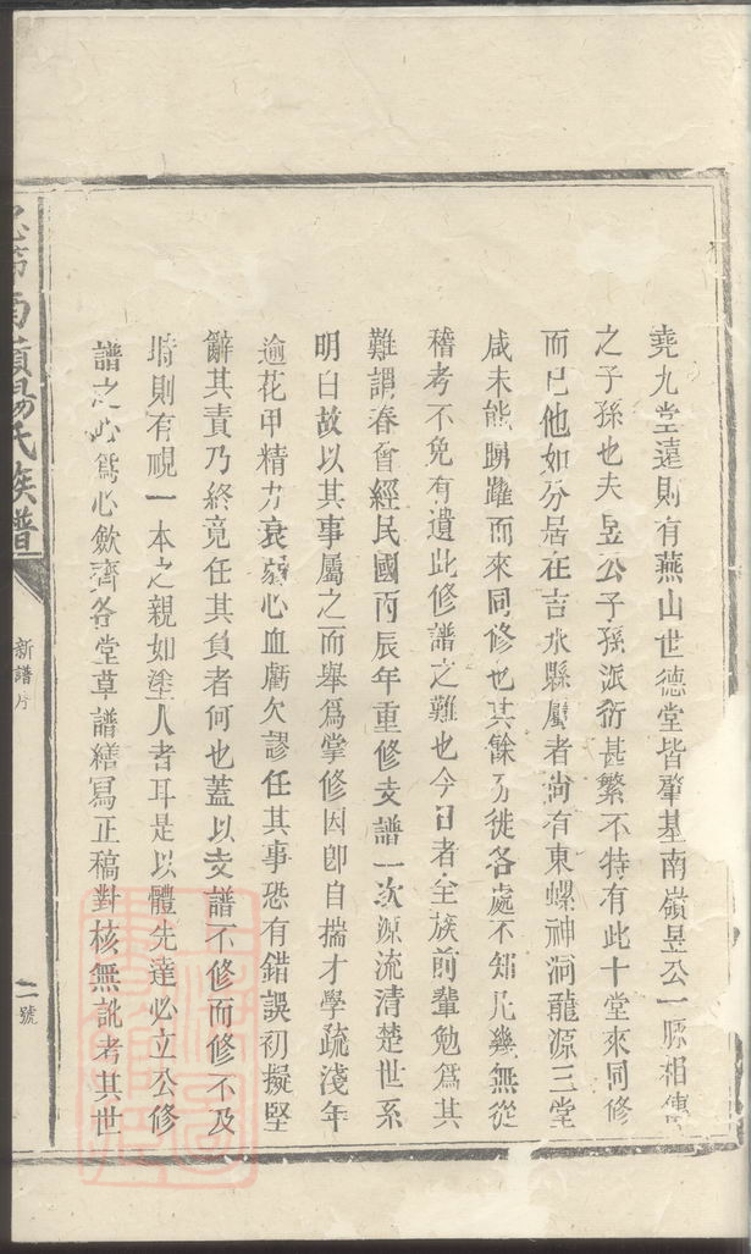 堯九堂遠則有燕山世德堂皆肇基南嶺昱公一脈相傳
之子孫也夫昱公子孫派衍甚繁不特有此十堂來同修
而已他如分居在吉水縣屬者尚有東螺神洞龍源三堂
咸未能踴躍而來同修也其餘分徙各處不知凡幾無從
稽考不免有遺此修譜之難也今日者全族前輩勉爲其
難謂春會經民國丙辰年重修支譜一次源流清楚世系
明白故以其事屬之而舉爲掌修因卽自揣才學疏淺年
逾花甲精力衰蒻心血虧欠謬任其事恐有錯誤初擬堅
辭其責乃終竟任其負者何也蓋以支譜不修而修不及
時則有視一本之親如塗人者耳是以體先達必立公修
譜之心爲心歛齊各堂草譜繕寫正稿對核無訛考其世
南嶺楊氏族譜
新譜序
二號